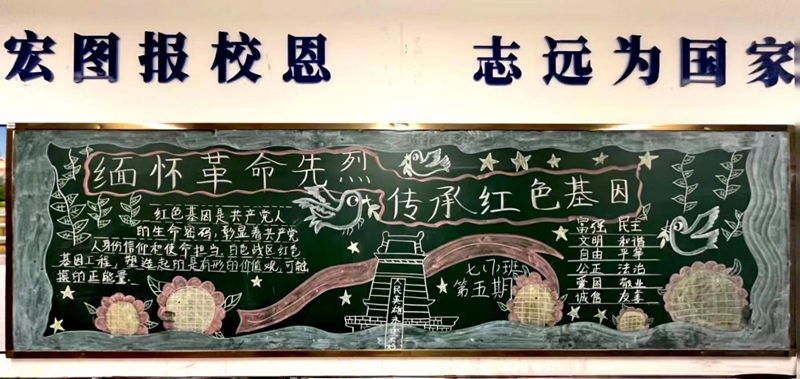 宏图报校恩 志远为国家
缅怀革命先烈
传承红色基因
红色基因是共产党人
的生命密码,彰显着共产党
人身份信价和使命担当。白色战区红色
基因工程,塑造起的是有形的价值观,可触
摸的正能量.
七(7)班
第五期
人民英雄永垂不朽
富强 民主
文明 和谐
自由 平等
公正 法治
爱国 敬业
诚信 友善